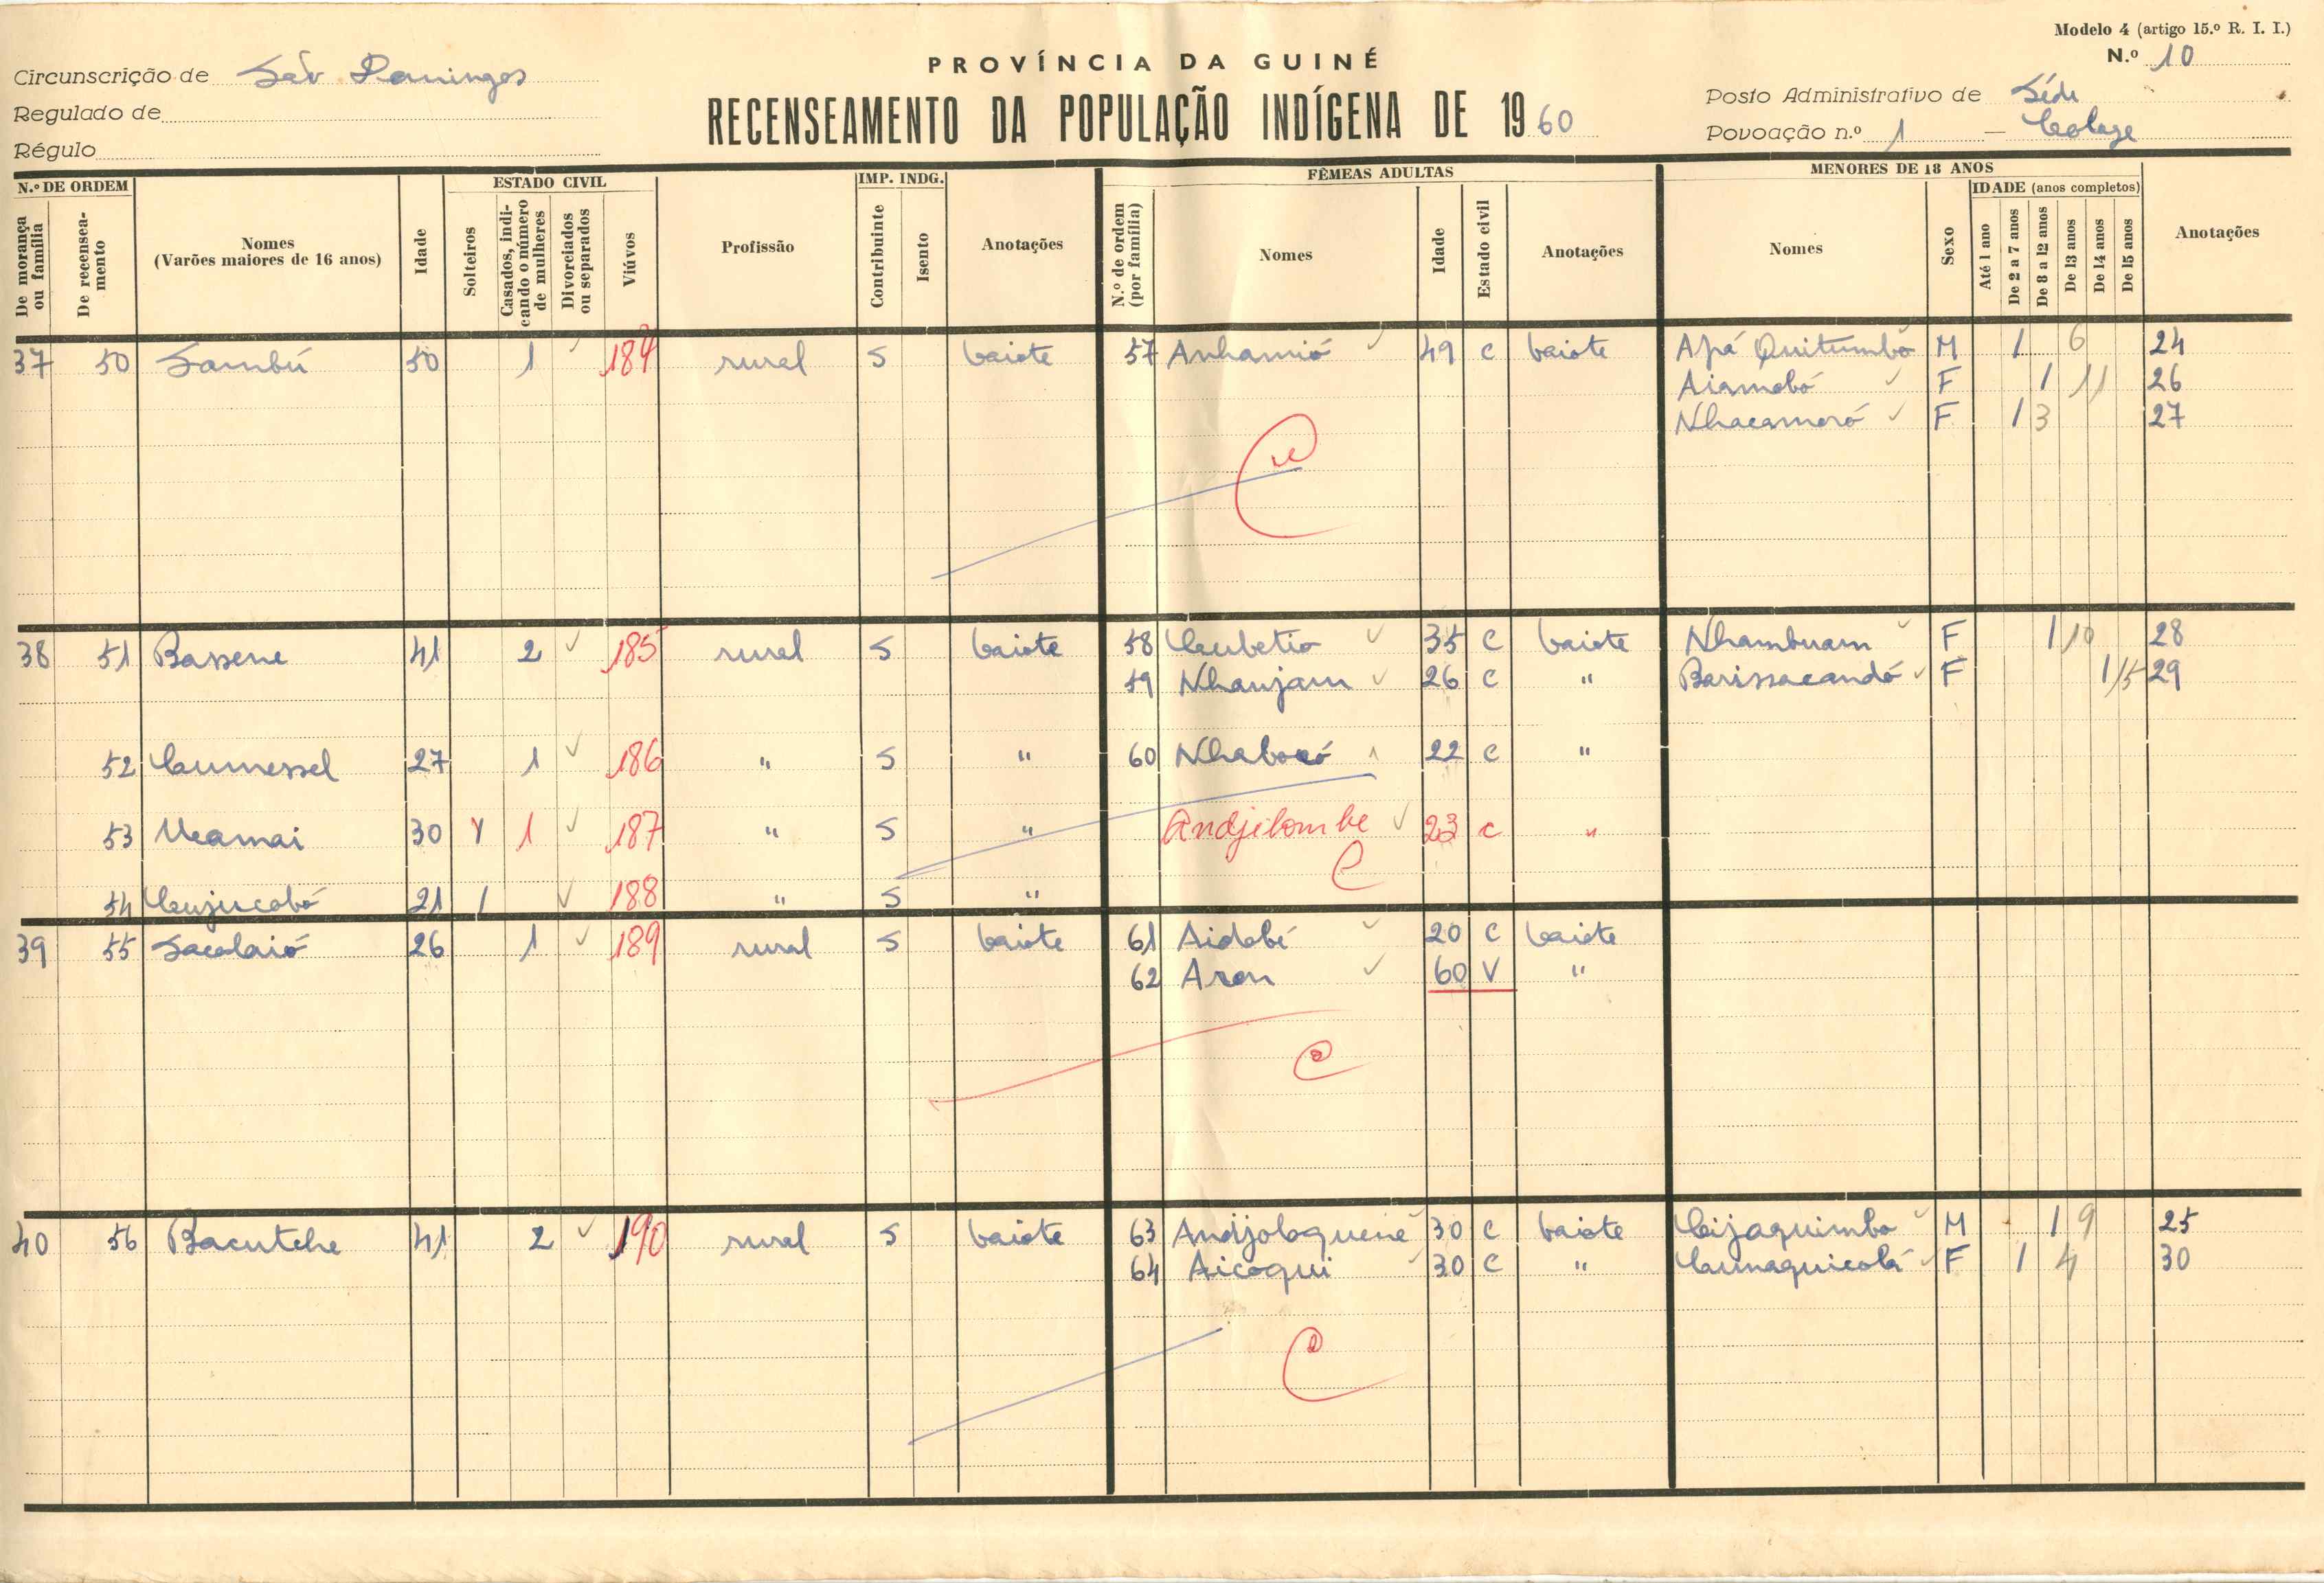 Modelo 4 (artigo 15.º R. I. I.)
N.º 10
PROVÍNCIA DA GUINÉ
RECENSEAMENTO DA POPULAÇÃO INDÍGENA DE 1960
Circunscrição de São Domingos
Regulado de
Régulo
Posto Administrativo de Séde
Povoação n.º 1 —
N.º DE ORDEM
De morança ou família
De recenseamento
Nomes
(Varões maiores de 16 anos)
Idade
ESTADO CIVIL
Solteiros
Casados, indicando o número de mulheres
Divorciados ou separados
Viúvos
Profissão
IMP. INDG.
Contribuinte
Isento
Anotações
FÊMEAS ADULTAS
N.º de ordem (por família)
Nomes
Idade
Estado civil
Anotações
MENORES DE 18 ANOS
Nomes
Sexo
IDADE (anos completos)
Até 1 ano
De 2 a 7 anos
De 8 a 12 anos
De 13 anos
De 14 anos
De 15 anos
Anotações
37 50 Sambú 50 1 184 rural S baiote 57 Anhamió 49 C baiote Apá Quitumbo M 1 6 24
Aiamobó F 1 11 26
Nhacamoró F 1 3 27
38 51 Bassene 41 2 185 rural S baiote 58 35 C baiote Nhambuam F 1 10 28
59 Nhanjam 26 C " Barissacandó F 1 15 29
52 Cumessel 27 1 186 " S " 60 22 C "
53 30 1 187 " S " Andjilombe 23 C "
54 Cujucabó 21 1 188 " S "
39 55 Sacalaió 26 1 189 rural S baiote 61 Aidabé 20 C baiote
62 60 V "
40 56 Bacutche 41 2 190 rural S baiote 63 Andjoloquené 30 C baiote Cijaquimbo M 1 9 25
64 Aicoqui 30 C " Cumaquicolá F 1 4 30